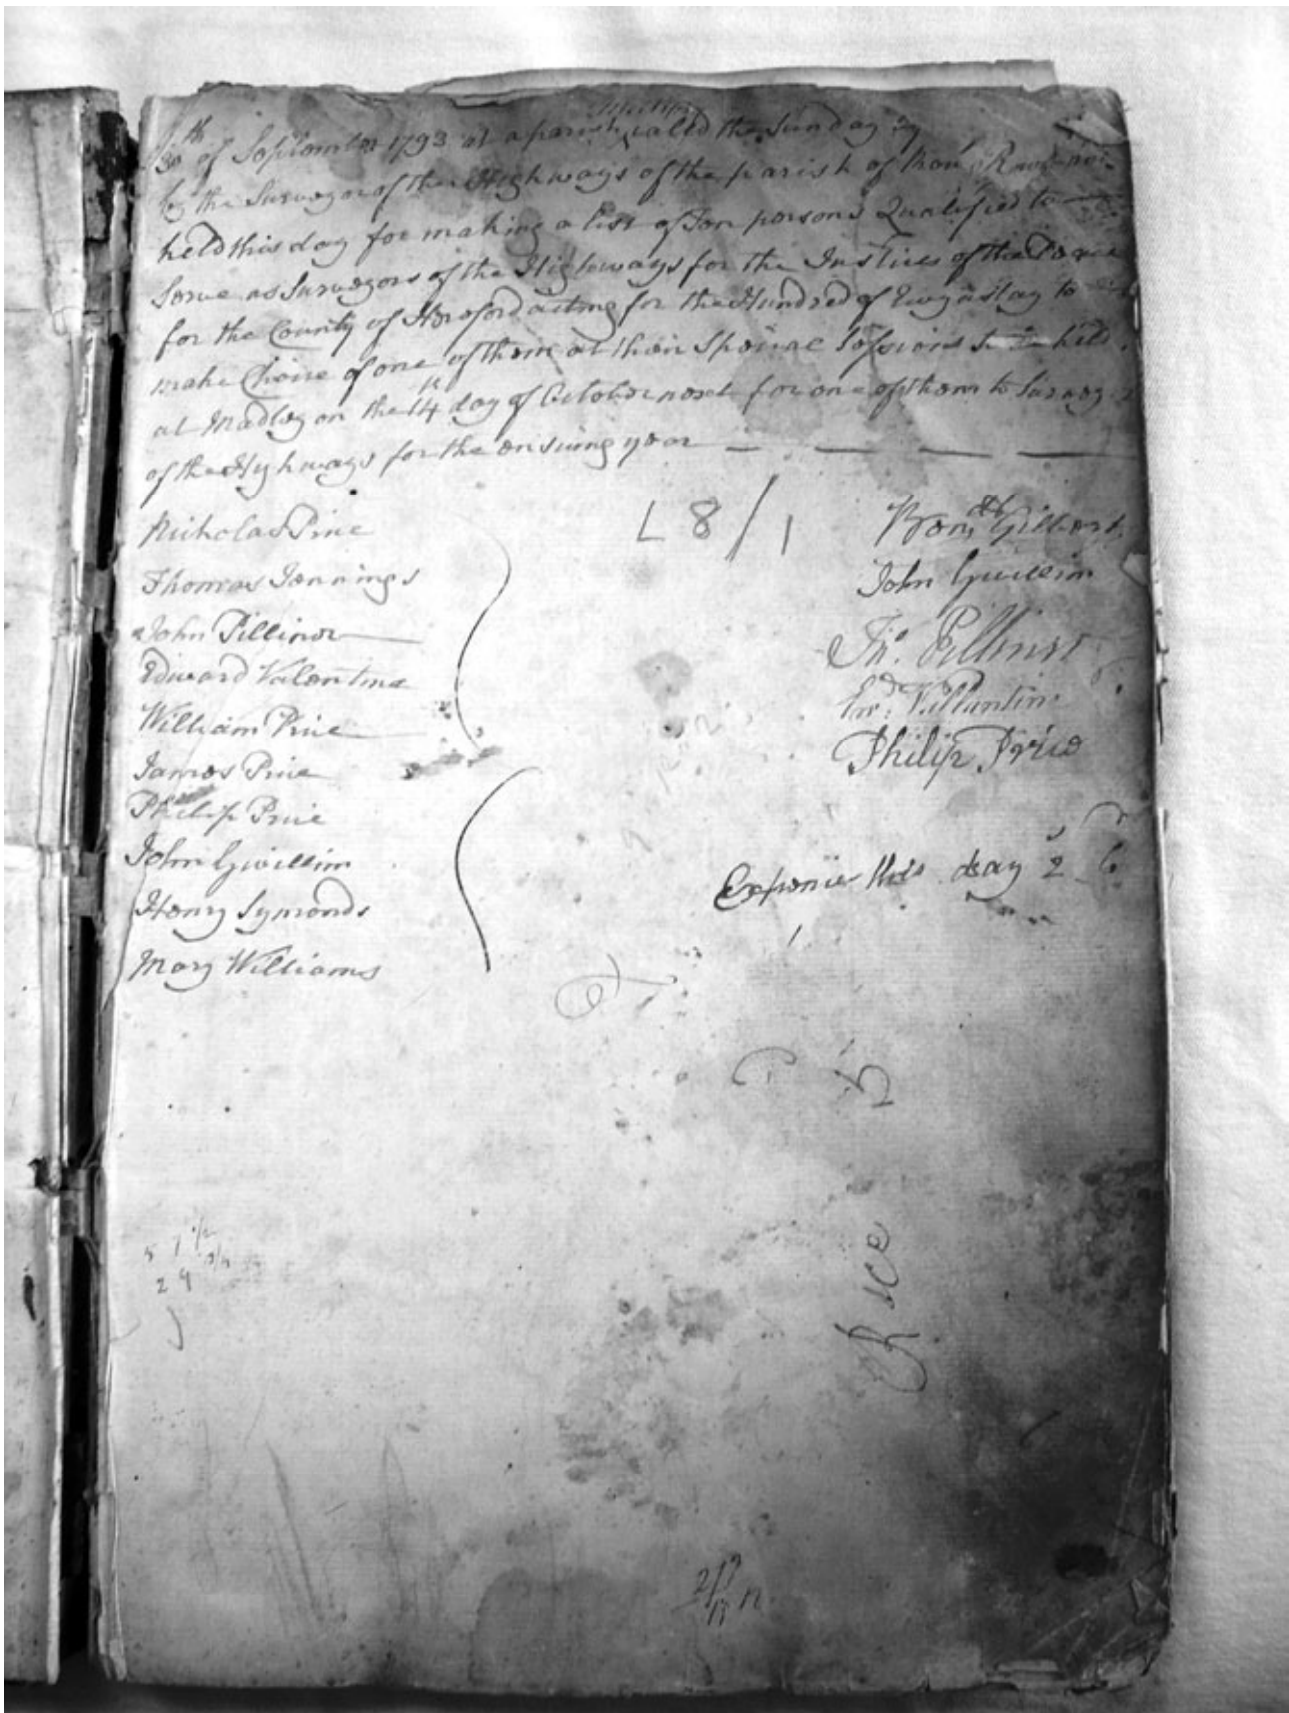 30th of September 1793 at a parish Meeting called the Sunday
by the Surveyor of the Highways of the parish of
held this day for making a list of Ten persons Qualified to
Serve as Surveyors of the Highways for the Justices of the Peace
for the County of Hereford acting for the Hundred of Ewyaslay to
make Choice of one of them at their Special Sessions to be held
at Madley on the 14th day of October next for one of them to Survey
of the Highways for the ensuing year
L 8/1
Nicholas Price
Thomas Jennings
John Pillinor
Edward Valentine
William Price
James Price
Philip Price
John Gwillim
Henry Symonds
Mary Williams
Gilbert
John Gwillim
Jno. Pillinor
Ed: Vallantin
Philip Price
Expences this day 2 6
5 7 1/2
2 9 3/4
Price